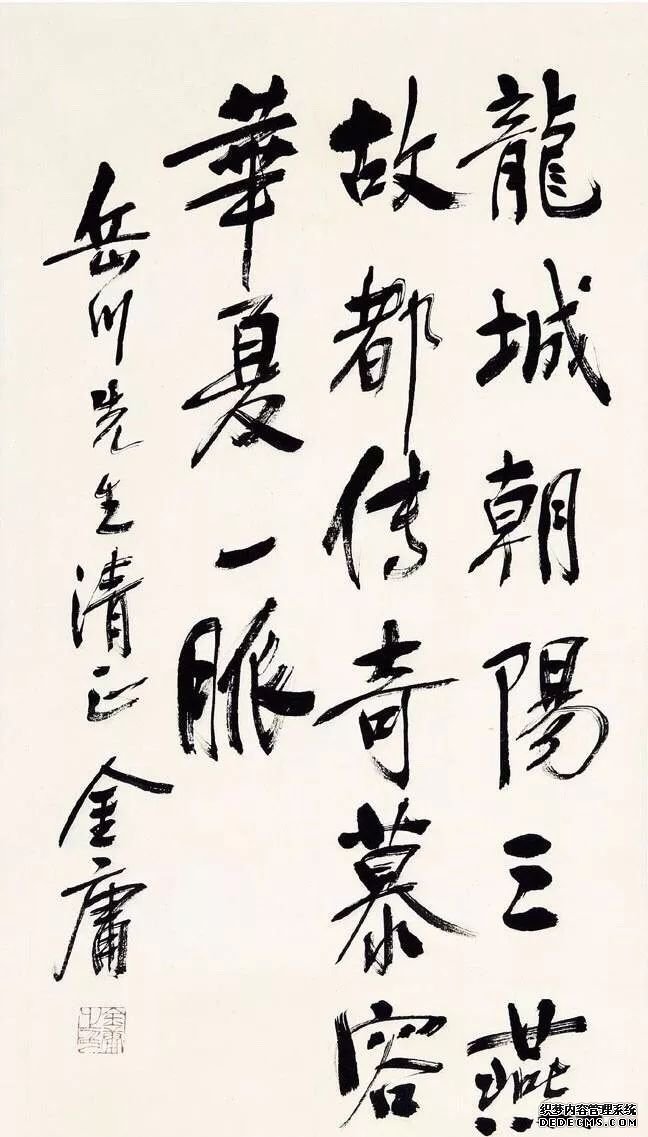 龍城朝陽三燕
故都傳奇慕容
華夏一脈
岳川先生清正 金庸
织梦内容管理系统
DEDECMS.COM